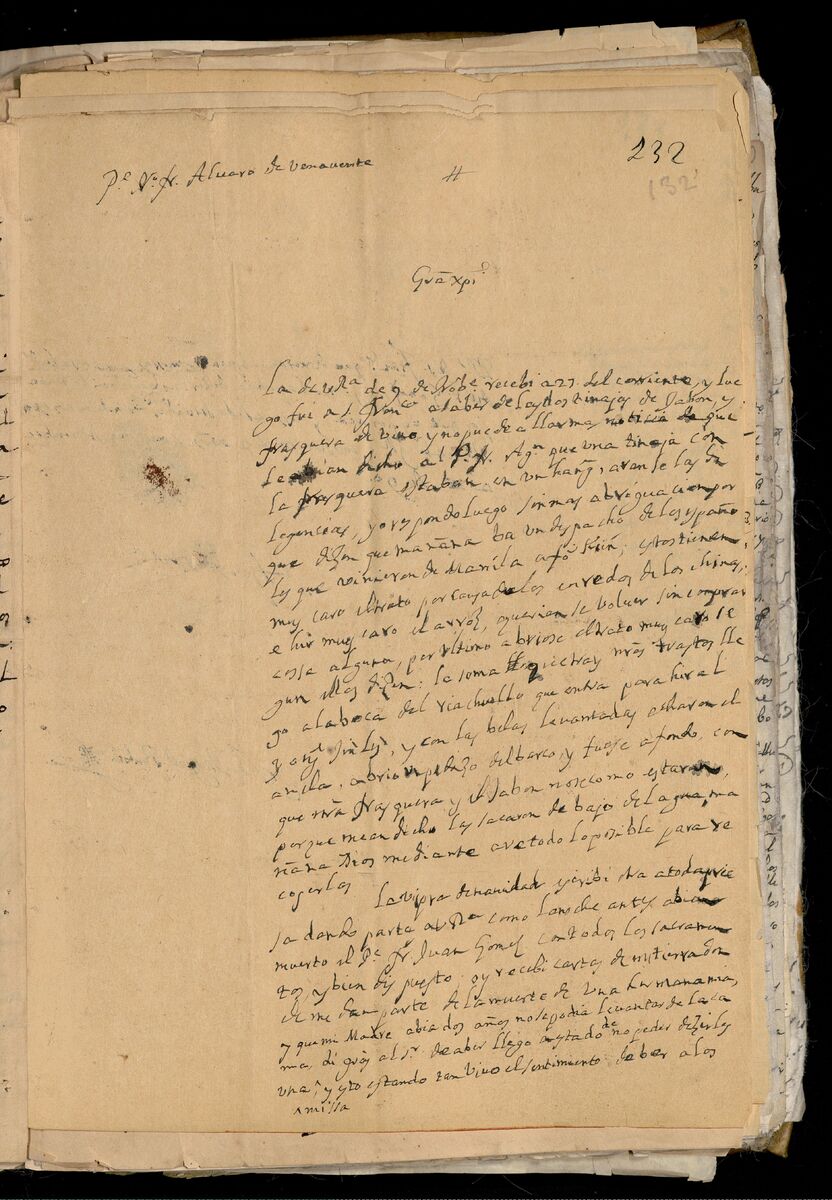 232
132
Pe. No. fr. Alvaro de Venavente
Gra xpi
La de V Ra de 9 de Nobe recebi a 27 del corriente, y lue
go fue a S. Franco a saber de las dos tinajas de Jabon, y
frasquera de vino, y no pude allar mas noticia de que
le abian dicho al P. fr. Agn que una tinaja con
la frasquera estaban en un
legencias, yo respondo luego sin mas abriguacion por
que dizen que mañana ba un despacho de los españo
les que vinieron de Manila a ; estos tienen
muy caro el trato por causa de los enredos de los chinas,
e hir muy caro el arroz, querian se bolver sin comprar
cossa alguna, por ultimo abriose el trato muy caro se
gun ellos dizen: la soma que traya nros trastos lle
go a la boca del riachuello que entra para hir al
y con las belas levantadas echaron el
ancla, abrio un pedazo del barco, y fuese a fondo, con
que nra frasquera y el Jabon no se como estaran,
porque me an dicho las sacaron de bajo del agua, ma
ñana Dios mediante are todo lo posible para re
cogerlas
La vispra de navidad escribi otra a toda prie
sa dando parte a V Ra como la noche antes abia
muerto el Pe fr Juan Gomez con todos los sacramen
tos y bien dispuesto: oy recebi cartas de mi tierra don
de me dan parte de la muerte de una hermana mia,
y que mi Madre abia dos años no se podia levantar de la ca
ma, di gras al Sr. de aber llegado a estado de no poder dezirles
una, y esto estando tan vivo el sentimiento de ber a los
^ missa